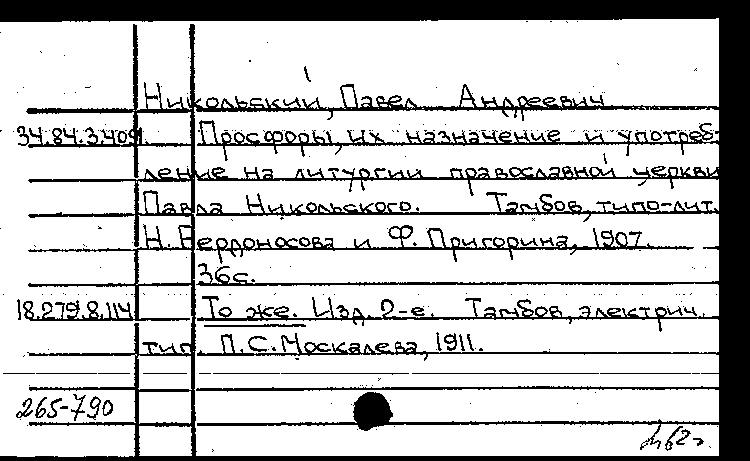 Никольский, Павел Андреевич
34.84.3.409. Просфоры, их назначение и употреб-
ление на литургии православной церкви
Павла Никольского. Тамбов, типо-лит.
Н. Бердоносова и Ф. Пригорина, 1907.
36с.
18.279.8.114 То же. Изд. 2-е. Тамбов, электрич.
тип. П.С. Москалева, 1911.
265-790